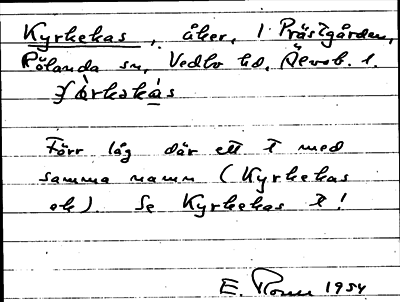 Kyrkekas, åker, 1 Prästgården,
Rölanda sn, Vedbo hd, Älvsb. l.
Förr låg där ett t med
samma namn (Kyrkekas
ek). Se Kyrkekas t!
E. 1954